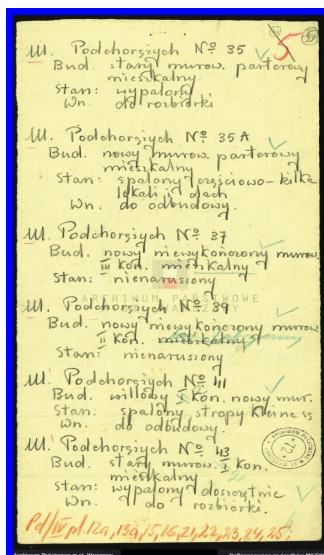 5
Ul. Podchorążych № 35
Bud. stary murow. parterowy
mieszkalny
Stan: wypalony
Wn. do rozbiórki
Ul. Podchorążych № 35 A
Bud. nowy murow. parterowy
mieszkalny
Stan: spalony częściowo - kilka
lokali i dach
Wn. do odbudowy.
Ul. Podchorążych № 37
Bud. nowy niewykończony murow.
III kon. mieszkalny
Stan: nienaruszony
ARCHIWUM PAŃSTWOWE
W WARSZAWIE
Ul. Podchorążych № 39
Bud. nowy niewykończony murow.
II kon. mieszkalny
Stan: nienaruszony
Ul. Podchorążych № 41
Bud. willowy I kon. nowy mur.
Stan: spalony, stropy Kleine są
Wn. do odbudowy.
Ul. Podchorążych № 43
Bud. stary murow. I kon.
mieszkalny
Stan: wypalony doszczętnie
Wn. do rozbiórki.
Pd/IV pl. 12a, 13a, 15, 16, 21, 22, 23, 24, 25;